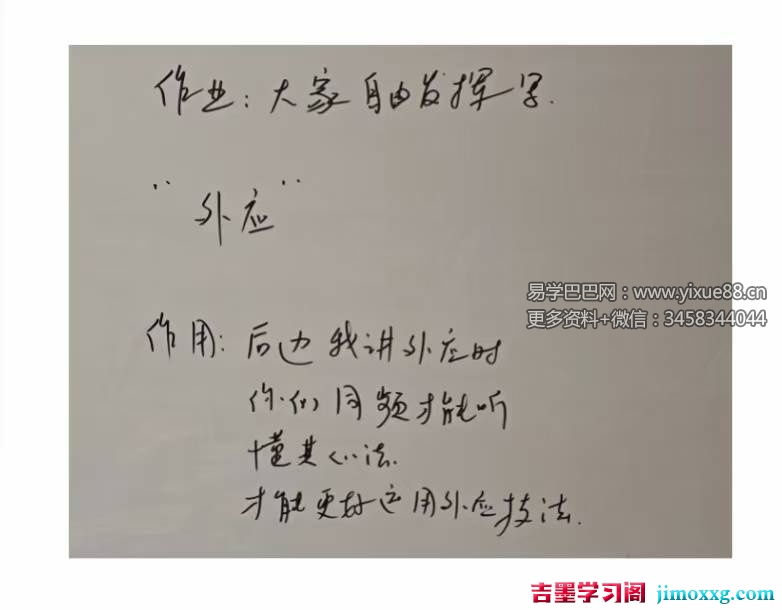 作业：大家自由发挥写.
"外应"
易学巴巴网：www.yixue88.cn
更多资料+微信：3458344044
作用：后边我讲外应时
你们同频才能听
懂其心法.
才能更好运用外应技法.
吉墨学习阁 jimoxxg.com